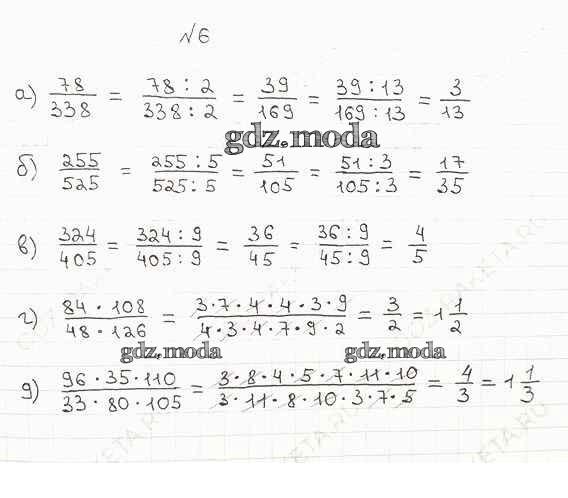 №6
а) 78/338 = 78 : 2/338 : 2 = 39/169 = 39 : 13/169 : 13 = 3/13
gdz.moda
б) 255/525 = 255 : 5/525 : 5 = 51/105 = 51 : 3/105 : 3 = 17/35
в) 324/405 = 324 : 9/405 : 9 = 36/45 = 36 : 9/45 : 9 = 4/5
г) 84 · 108/48 · 126 = 3 · 7 · 4 · 4 · 3 · 9/4 · 3 · 4 · 7 · 9 · 2 = 3/2 = 1 1/2
gdz.moda gdz.moda
д) 96 · 35 · 110/33 · 80 · 105 = 3 · 8 · 4 · 5 · 7 · 11 · 10/3 · 11 · 8 · 10 · 3 · 7 · 5 = 4/3 = 1 1/3